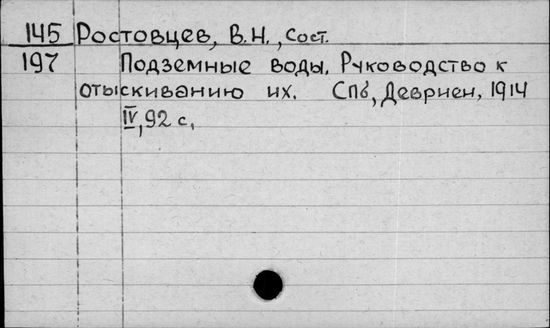 145 Ростовцев, В.Н., Сост.
197 Подземные воды. Руководство к
отыскиванию их. Спб, Девриен, 1914
IV, 92 с.